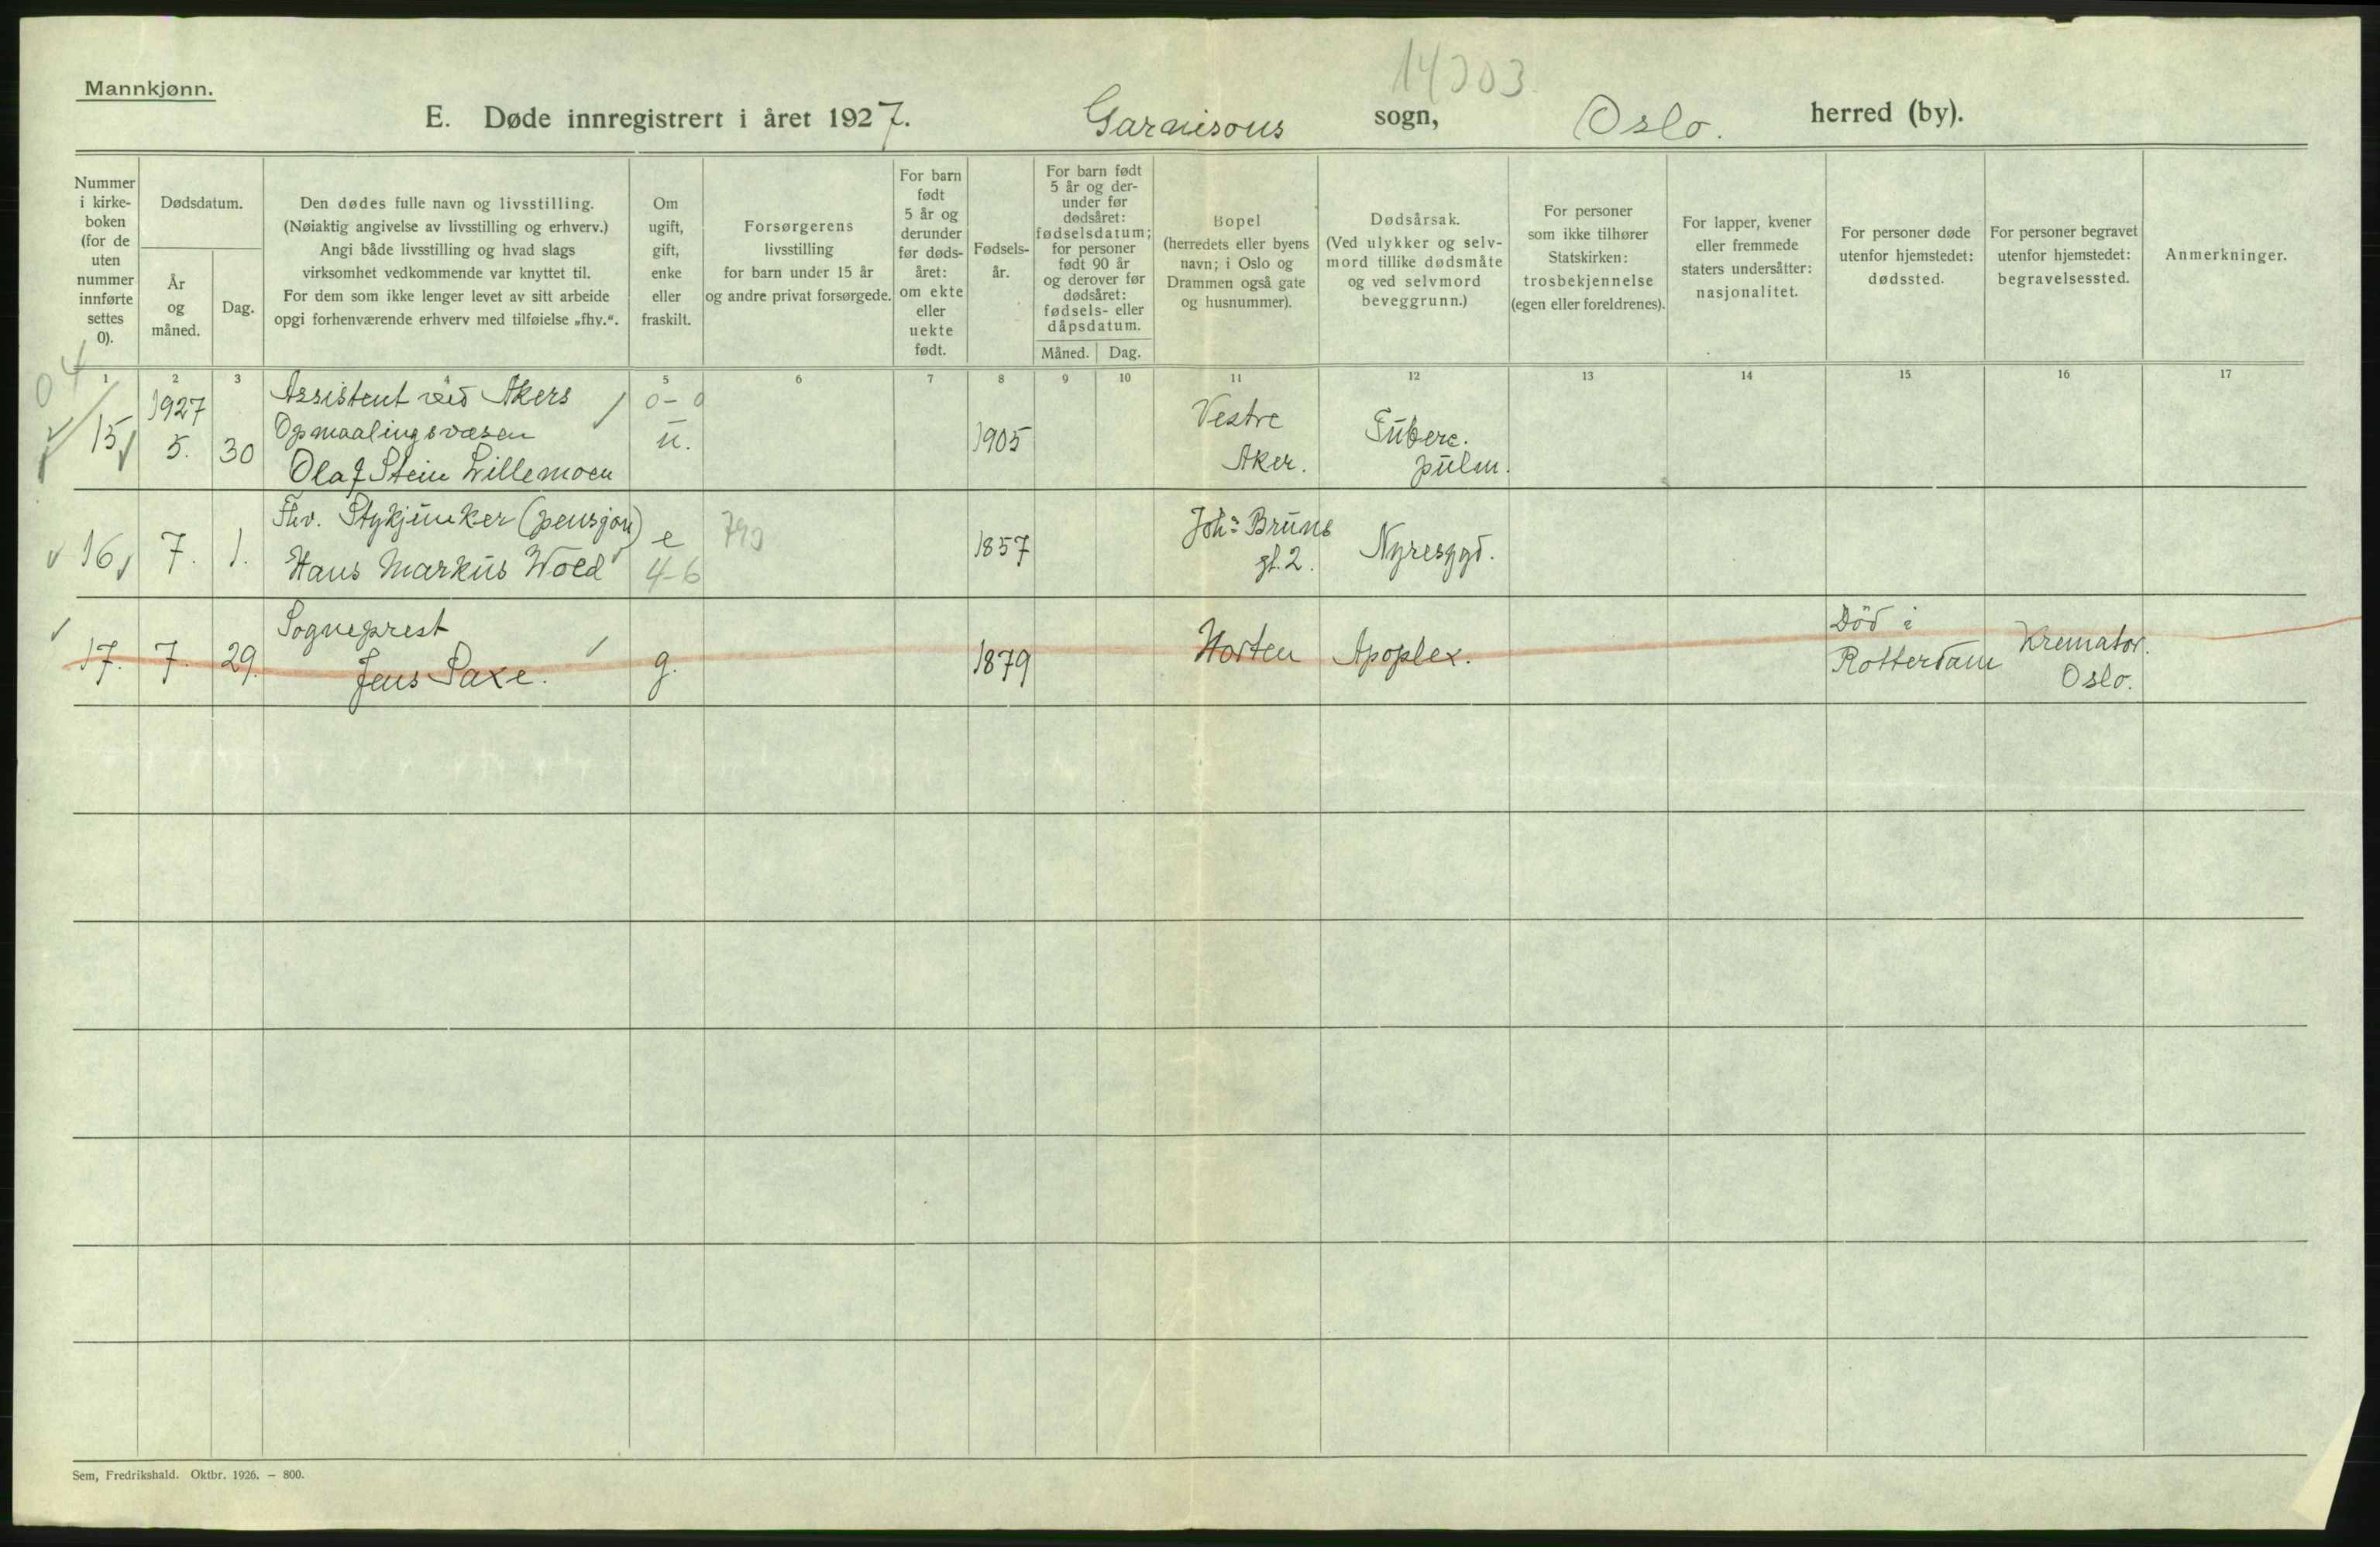 14303
Mannkjønn.
E. Døde innregistrert i året 1927. Garnisons sogn, Oslo. herred (by).
Nummer
i kirke-
boken
(for de
uten
nummer
innførte
settes
0).
Dødsdatum.
År
og
måned.
Dag.
Den dødes fulle navn og livsstilling.
(Nøiaktig angivelse av livsstilling og erhverv.)
Angi både livsstilling og hvad slags
virksomhet vedkommende var knyttet til.
For dem som ikke lenger levet av sitt arbeide
opgi forhenværende erhverv med tilføielse „fhv.“.
Om
ugift,
gift,
enke
eller
fraskilt.
Forsørgerens
livsstilling
for barn under 15 år
og andre privat forsørgede.
For barn
født
5 år og
derunder
før døds-
året:
om ekte
eller
uekte
født.
Fødsels-
år.
For barn født
5 år og der-
under før
dødsåret:
fødselsdatum;
for personer
født 90 år
og derover før
dødsåret:
fødsels- eller
dåpsdatum.
Måned. Dag.
Bopel
(herredets eller byens
navn; i Oslo og
Drammen også gate
og husnummer).
Dødsårsak.
(Ved ulykker og selv-
mord tillike dødsmåte
og ved selvmord
beveggrunn.)
For personer
som ikke tilhører
Statskirken:
trosbekjennelse
(egen eller foreldrenes).
For lapper, kvener
eller fremmede
staters undersåtter:
nasjonalitet.
For personer døde
utenfor hjemstedet:
dødssted.
For personer begravet
utenfor hjemstedet:
begravelsessted.
Anmerkninger.
1 2 3 4 5 6 7 8 9 10 11 12 13 14 15 16 17
04
1927 Assistent ved Akers 0-0 Vestre
15 5. 30 Opmaalingsvæsen u. 1905 Aker. Tuberc.
Olaf Stein Lillemoen pulm.
Fhv. Stykjunker (pensjon) e 790 Johs Bruns
16 7. 1. Hans Markus Wold 4-6 1857 gt. 2. Nyresygd.
Sogneprest Död i
17. 7. 29. Jens Paxe. g. 1879 Horten Apoplex. Rotterdam Kremator.
Oslo.
Sem, Fredrikshald. Oktbr. 1926. — 800.